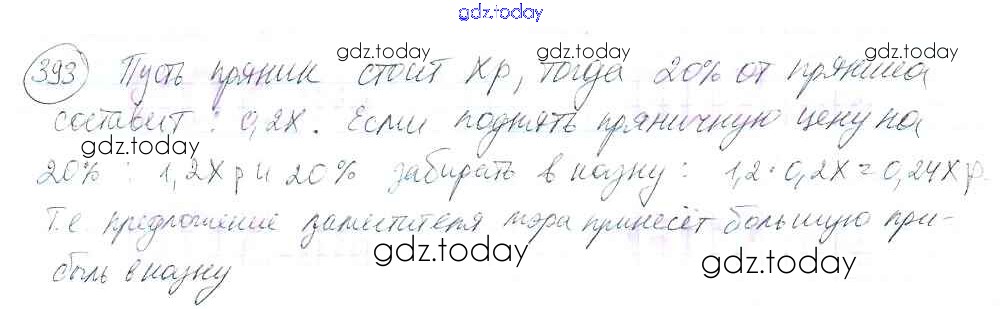 gdz.today
393 Пусть пряник стоит Xр, тогда 20% от пряника
составит: 0,2X. Если поднять пряничную цену на
20%: 1,2X р и 20% забирать в казну: 1,2·0,2X=0,24X р.
Т.е. предложение заместителя мэра принесёт большую при-
быль в казну
gdz.today
gdz.today
gdz.today
gdz.today
gdz.today
gdz.today
gdz.today
gdz.today